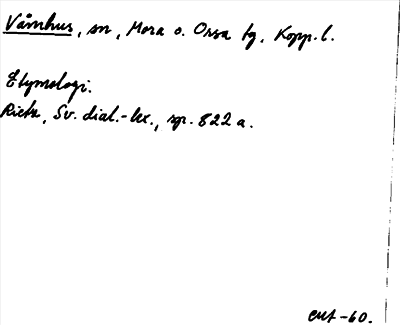 Våmhus, sn, Mora o. Orsa tg, Kopp. l.
Etymologi.
Rietz, Sv. dial.-lex., sp. 822 a.
-60.